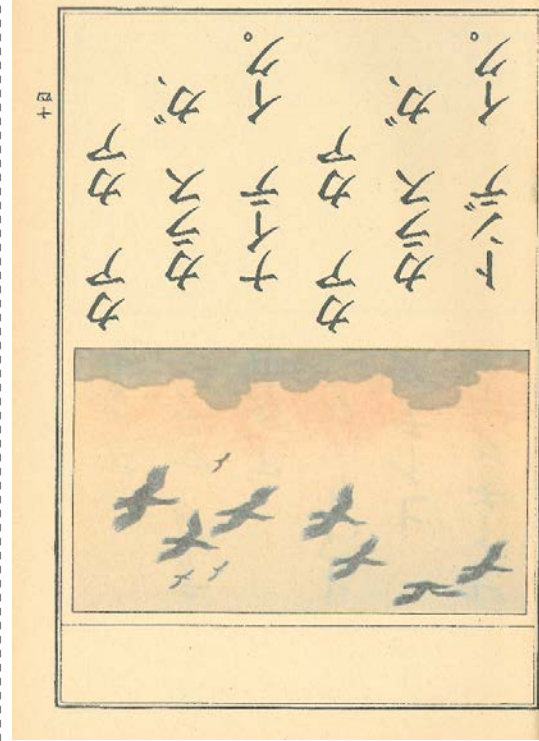 カア カア
カラス ガ、
ナイテ イク。
カア カア
カラス ガ、
トンデ イク。
十四